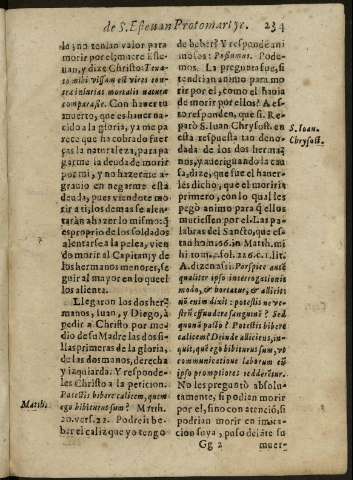 de S. Esteuan Protomartyr. 234
lo ; no tenian valor para
morir por el ; muere Este-
uan, y dize Christo: Tua-
to mihi vissam est vires con-
tra iniurias mortalis natura
comparasse. Con hauer tu
muerto, que es hauer na-
cido a la gloria, ya me pa-
rece que ha cobrado fuer-
ças la naturaleza, para pa-
garme la deuda de morir
por mi, y no hazerme a-
grauio en negarme esta
deuda, pues viendote mo-
rir a ti, los demas se alen-
tarân ahazer lo mismo: q̃
es proprio de los soldados
alentarse a la pelea, vien-
do morir al Capitan; y de
los hermanos menores, se-
guir al mayor en lo que el
los alienta.
Llegaron los dos her-
manos, Iuan, y Diego, à
pedir a Christo por me-
dio de su Madre las dos si-
llas primeras de la gloria,
de las dos manos, derecha
y izquiarda. Y responde-
les Christo a la peticion.
Matth. Potestis bibere calicem, quem
ego bibiturus sum? Matth.
20. vers. 22. Podreis be-
ber el caliz que yo tengo
de beber? Y responde ani
mosos: Possumus. Pode-
mos. La pregunta fue, si
tendrian animo para mo
rir por el, como el hauia
de morir por ellos? A es-
to responden, que si. Re
parò S. Iuan Chrysost. en
S. Ioan.
Chrysost.
esta respuesta tan deno-
dada de los dos herma-
nos, y aueriguando la cau
sa, dize, que fue el hauer-
les dicho, que el moriria
primero, con lo qual les
pegò animo para q̃ ellos
muriessen por el. Las pa-
labras del Sancto, que es-
tan hom. 66. in Matth. mi
hi tom. 2. fol. 226. c. 1. lit.
A. dizen assi: Perspice aute
qualiter ipso interrogationis
modo, & hortatur, & allicit:
nõ enim dixit: potestis ne ve-
strũ effundere sanguinẽ? Sed
quonã pacto? Potestis bibere
calicem? Deinde alliciens, in-
quit, quẽ ego bibiturus sum, vt
communicatione laborum eũ
ipso promptiores redderetur.
No les preguntò absolu-
tamente, si podian morir
por el, sino con atenció, si
podrian morir en imita-
cion suya, puso delãte su
Gg 2 muer-